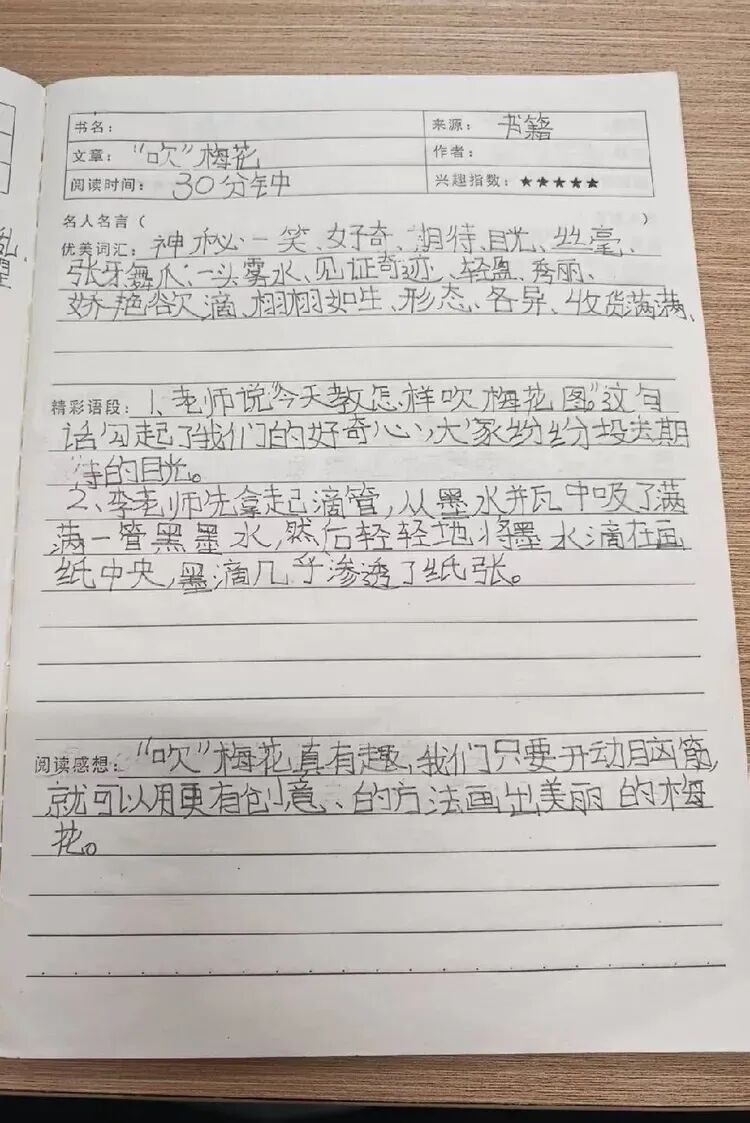 书名： 来源： 书籍
文章： “吹”梅花 作者：
阅读时间： 30分钟 兴趣指数：★★★★★
名人名言（ ）
优美词汇： 神秘一笑、好奇、期待、目光、丝毫、
张牙舞爪、一头雾水、见证奇迹、轻盈、秀丽、
娇艳欲滴、栩栩如生、形态、各异、收货满满、
精彩语段： 1、老师说“今天教怎样吹梅花图。”这句
话勾起了我们的好奇心，大家纷纷投去期
待的目光。
2、李老师先拿起滴管，从墨水并瓦中吸了满
满一管黑墨水，然后轻轻地将墨水滴在画
纸中央，墨滴几乎渗透了纸张。
阅读感想： “吹”梅花真有趣，我们只要开动脑筋，
就可以用更有创意、的方法画出美丽的梅
花。